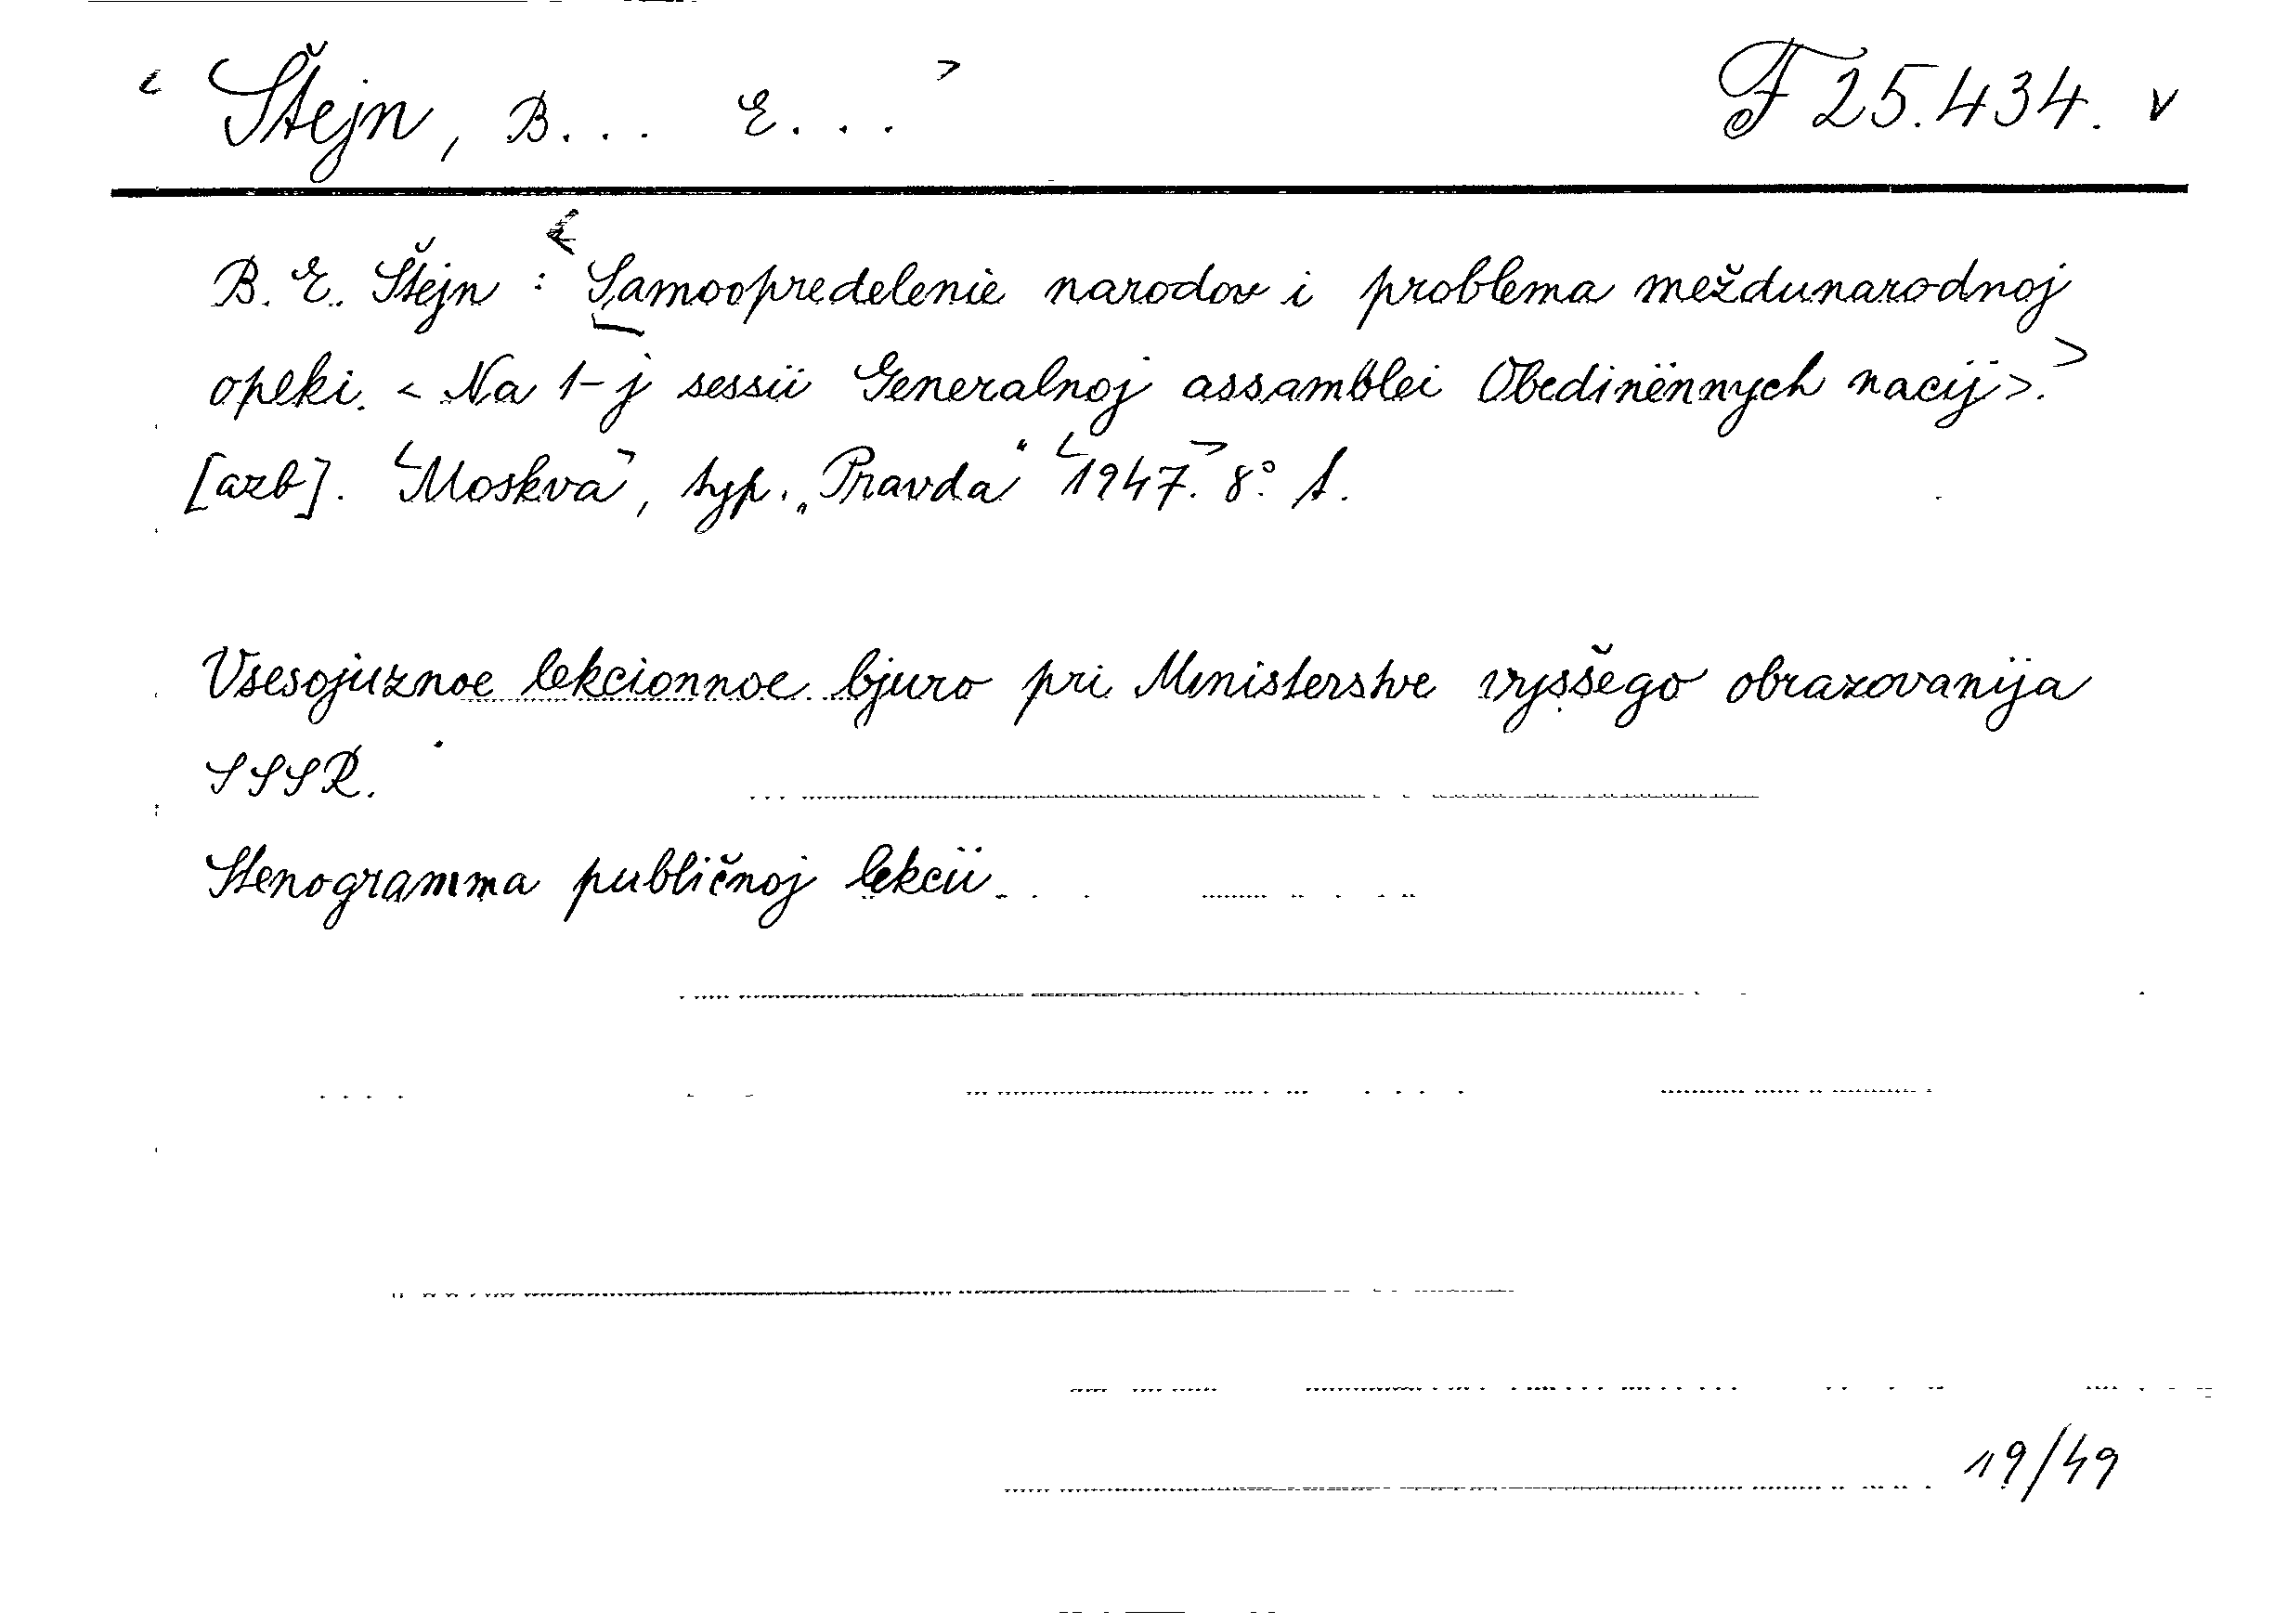 < Štejn, B... E... > F 25.434. v
B. E. Štejn : < Samoopredelenie narodov i problema meždunarodnoj
opeki. < Na 1-j sessii Generalnoj assamblei Obedinënnych nacij >. >
[azb]. <Moskva>, typ. „Pravda“ <1947.> 8° S.
Vsesojuznoe lekcionnoe bjuro pri Ministerstve vysšego obrazovanija
SSSR.
Stenogramma publičnoj lekcii.
19/49